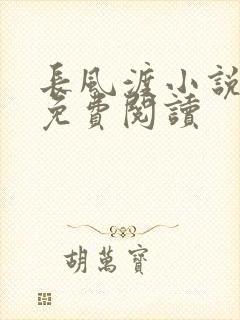 長風渡小說
免費閱讀
胡萬寶